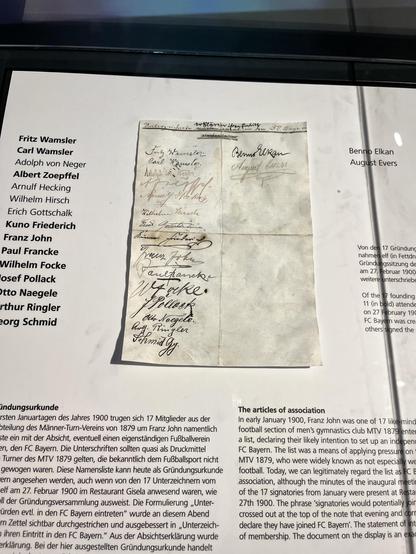 Fritz Wamsler
Carl Wamsler
Adolph von Neger
Albert Zoepffel
Arnulf Hecking
Wilhelm Hirsch
Erich Gottschalk
Kuno Friederich
Franz John
Paul Francke
Wilhelm Focke
Josef Pollack
Otto Naegele
Arthur Ringler
eorg Schmid
Fritz Wamsler
Carl Wamsler
Wilhelm Hirsch
Franz John
Paul Francke
W Focke.
J Pollack
Otto Naegele.
Ringler
Schmid Gg.
Benno Elkan
August Evers
Benno Elkan
August Evers
Von den 17 Gründung
nahmen elf (in Fettdr
Gründungssitzung de
am 27. Februar 1900
weitere unterschrieb
Of the 17 founding
11 (in bold) attende
on 27 February 190
FC Bayern was cre
others signed the
ündungsurkunde
ersten Januartagen des Jahres 1900 trugen sich 17 Mitglieder aus der
bteilung des Männer-Turn-Vereins von 1879 um Franz John namentlich
ste ein mit der Absicht, eventuell einen eigenständigen Fußballverein
en, den FC Bayern. Die Unterschriften sollten quasi als Druckmittel
Turner des MTV 1879 gelten, die bekanntlich dem Fußballsport nicht
gewogen waren. Diese Namensliste kann heute als Gründungsurkunde
ern angesehen werden, auch wenn von den 17 Unterzeichnern vom
elf am 27. Februar im Restaurant Gisela anwesend waren, wie
ll der Gründungsversammlung ausweist. Die Formulierung „Unter-
ürden evtl. in den FC Bayern eintreten“ wurde an diesem Abend
m Zettel sichtbar durchgestrichen und ausgebessert in „Unterzeich-
n ihren Eintritt in den FC Bayern“. Aus der Absichtserklärung wurde
erklärung. Bei der hier ausgestellten Gründungsurkunde handelt
The articles of association
In early January 1900, Franz John was one of 17 like-mind
football section of men's gymnastics club MTV 1879 enter
a list, declaring their likely intention to set up an indepen
FC Bayern. The list was a means of applying pressure on
MTV 1879, who were widely known as not especially we
football. Today, we can legitimately regard the list as FC
association, although the minutes of the inaugural meetin
of the 17 signatories from January were present at Resta
27th 1900. The phrase 'signatories would potentially join
crossed out at the top of the note that evening and corr
declare they have joined FC Bayern'. The statement of
of membership. The document on the display is an ex